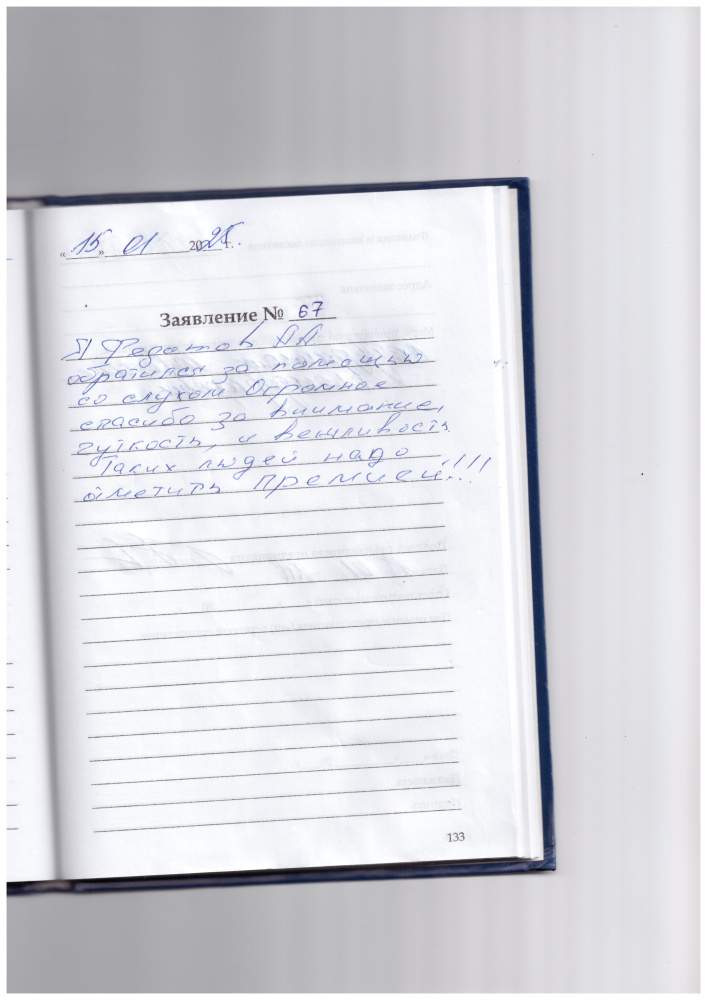 «15» 01 2025 г.
Заявление № 67
Я Федотов АА
обратился за помощью
со слухом Огромное
спасибо за внимание,
чуткость, и вежливость
Таких людей надо
отметить премией!!!
133